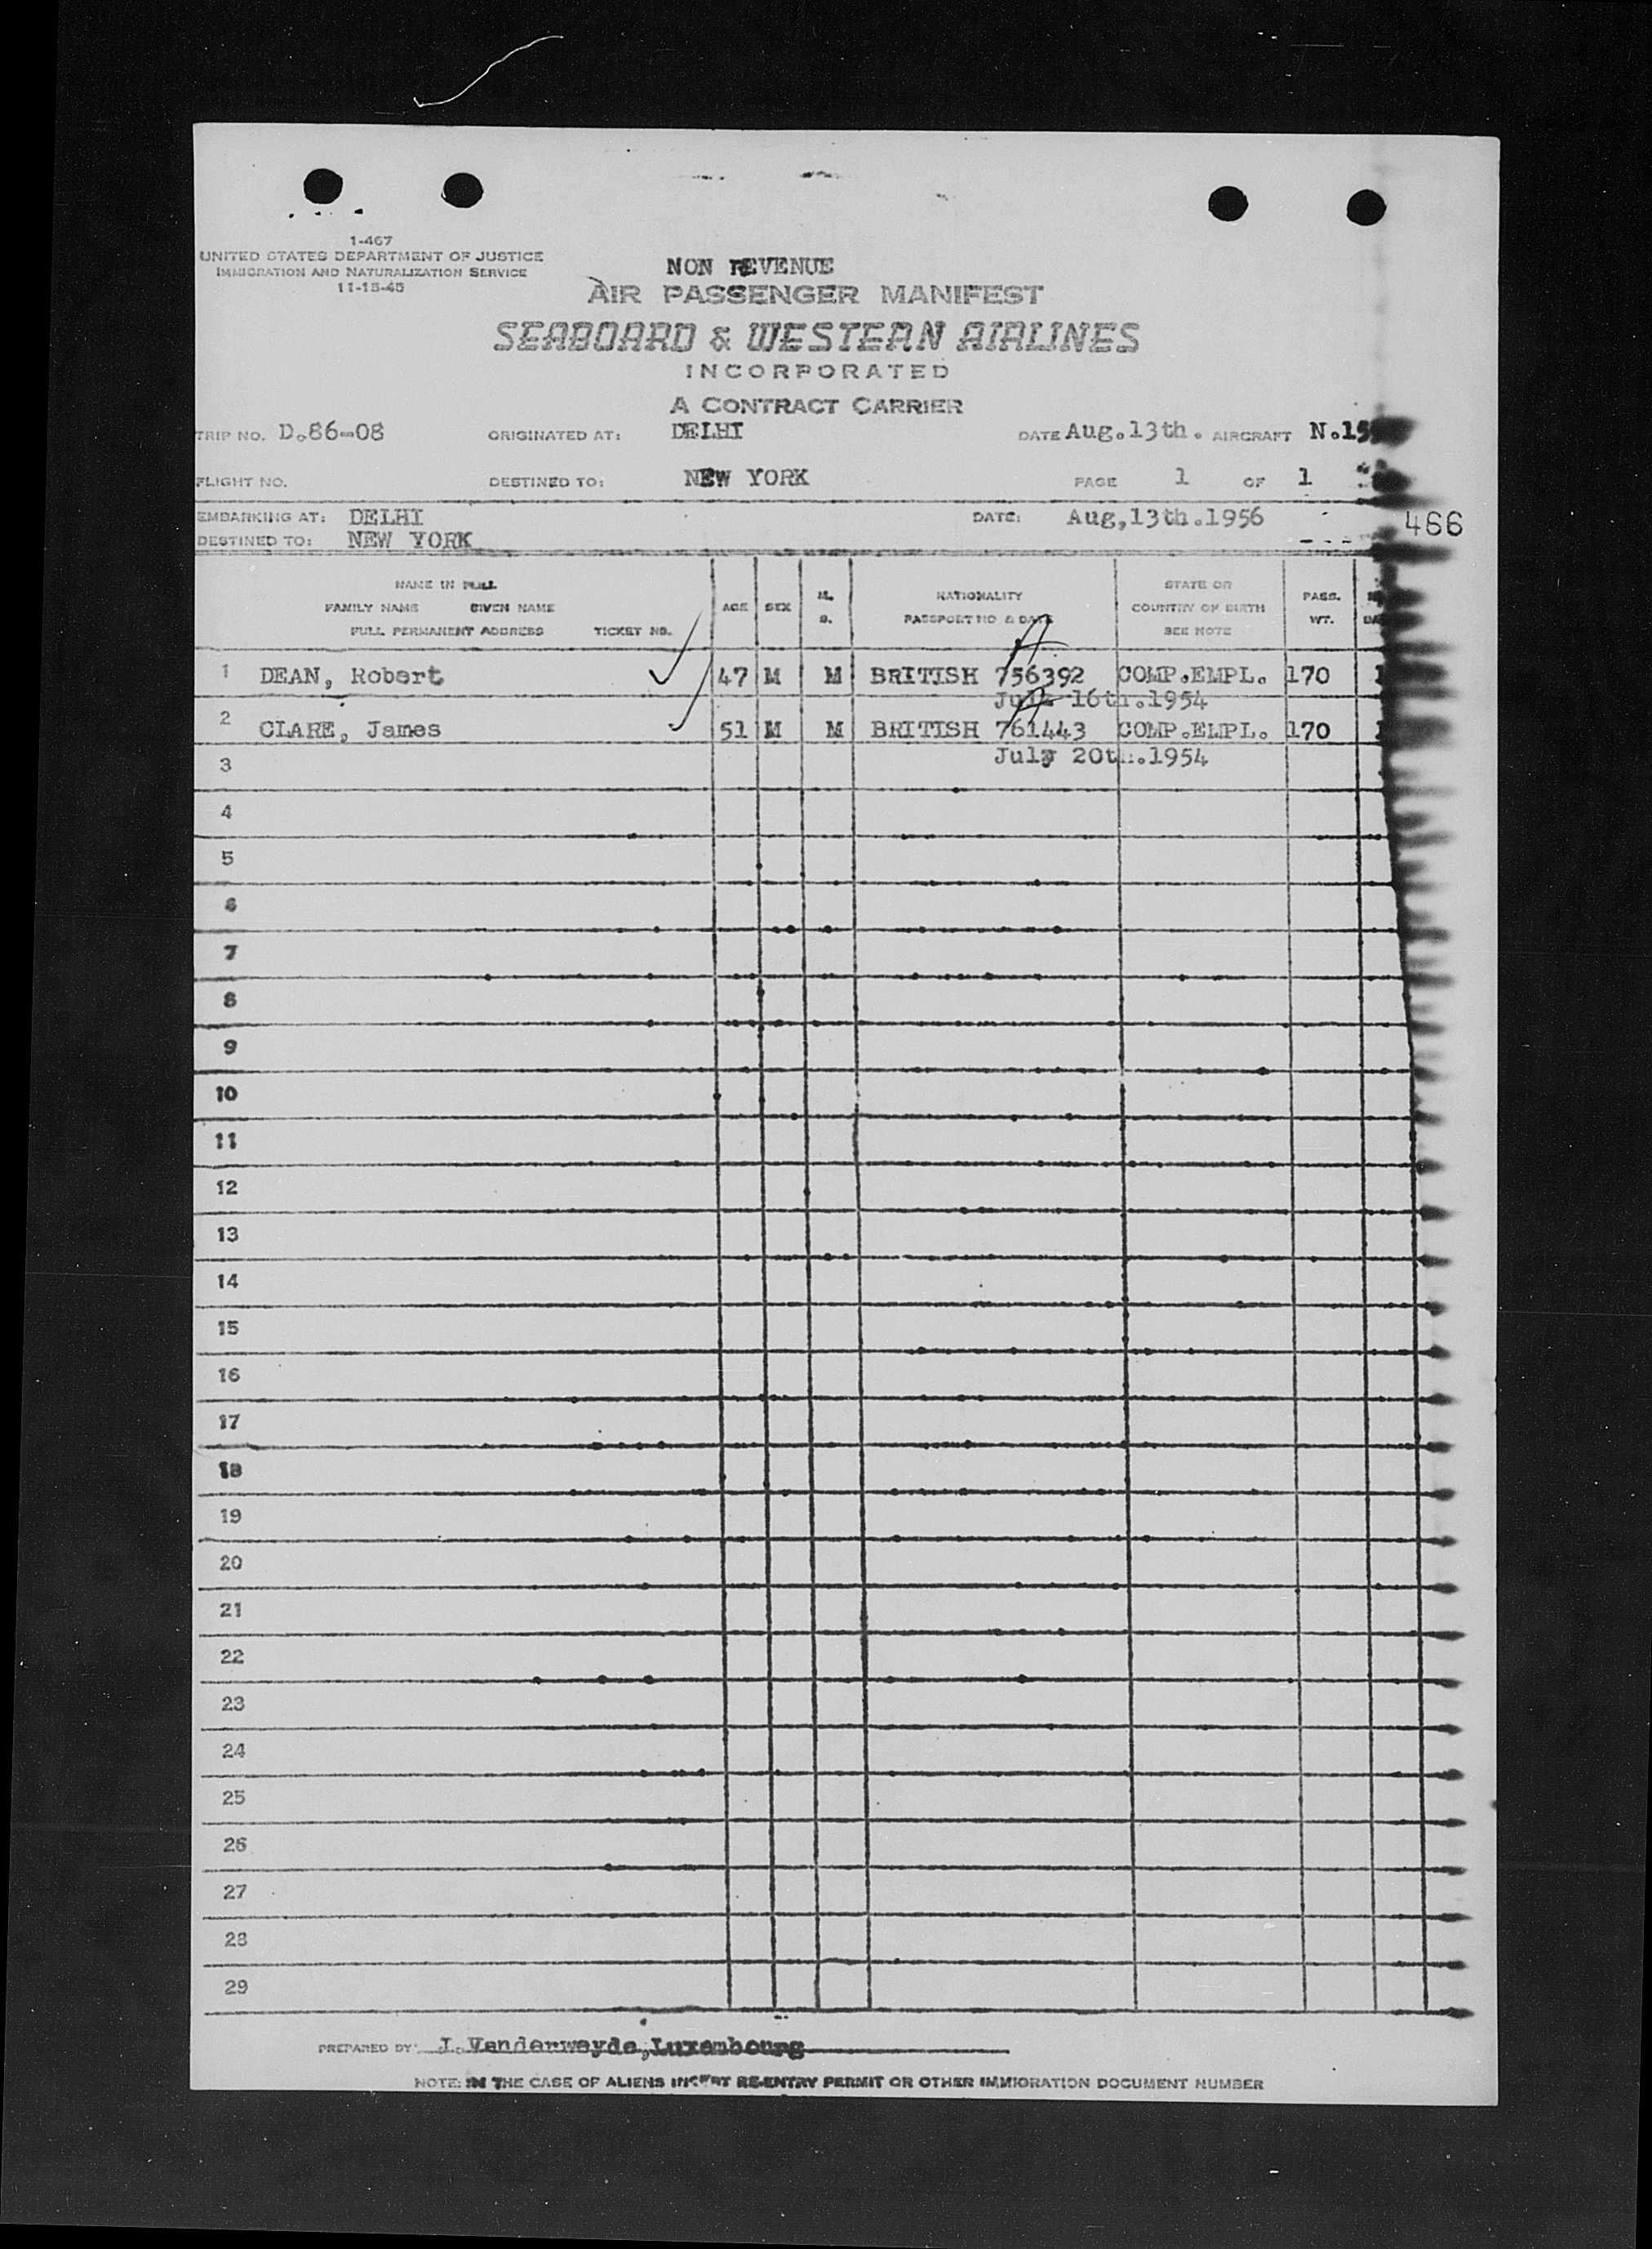 1-467
UNITED STATES DEPARTMENT OF JUSTICE
IMMIGRATION AND NATURALIZATION SERVICE
11-15-45
NON REVENUE
AIR PASSENGER MANIFEST
SEABOARD & WESTERN AIRLINES
INCORPORATED
A CONTRACT CARRIER
TRIP NO. D.86-08 ORIGINATED AT: DELHI DATE Aug.13th. AIRCRAFT
FLIGHT NO. DESTINED TO: NEW YORK PAGE 1 OF 1
EMBARKING AT: DELHI DATE: Aug,13th.1956 466
DESTINED TO: NEW YORK
NAME IN FULL
FAMILY NAME GIVEN NAME
FULL PERMANENT ADDRESS TICKET NO.
AGE SEX M. S.
NATIONALITY
PASSPORT NO & DATE
STATE OR
COUNTRY OF BIRTH
SEE NOTE
PASS.
WT.
1 DEAN, Robert 47 M M BRITISH 756392 COMP.EMPL. 170
July 16th.1954
2 CLARE, James 51 M M BRITISH 761443 COMP.EMPL. 170
July 20th.1954
3
4
5
6
7
8
9
10
11
12
13
14
15
16
17
18
19
20
21
22
23
24
25
26
27
28
29
PREPARED BY: J.Vanderweyde,Luxembourg
NOTE: IN THE CASE OF ALIENS INSERT RE-ENTRY PERMIT OR OTHER IMMIGRATION DOCUMENT NUMBER